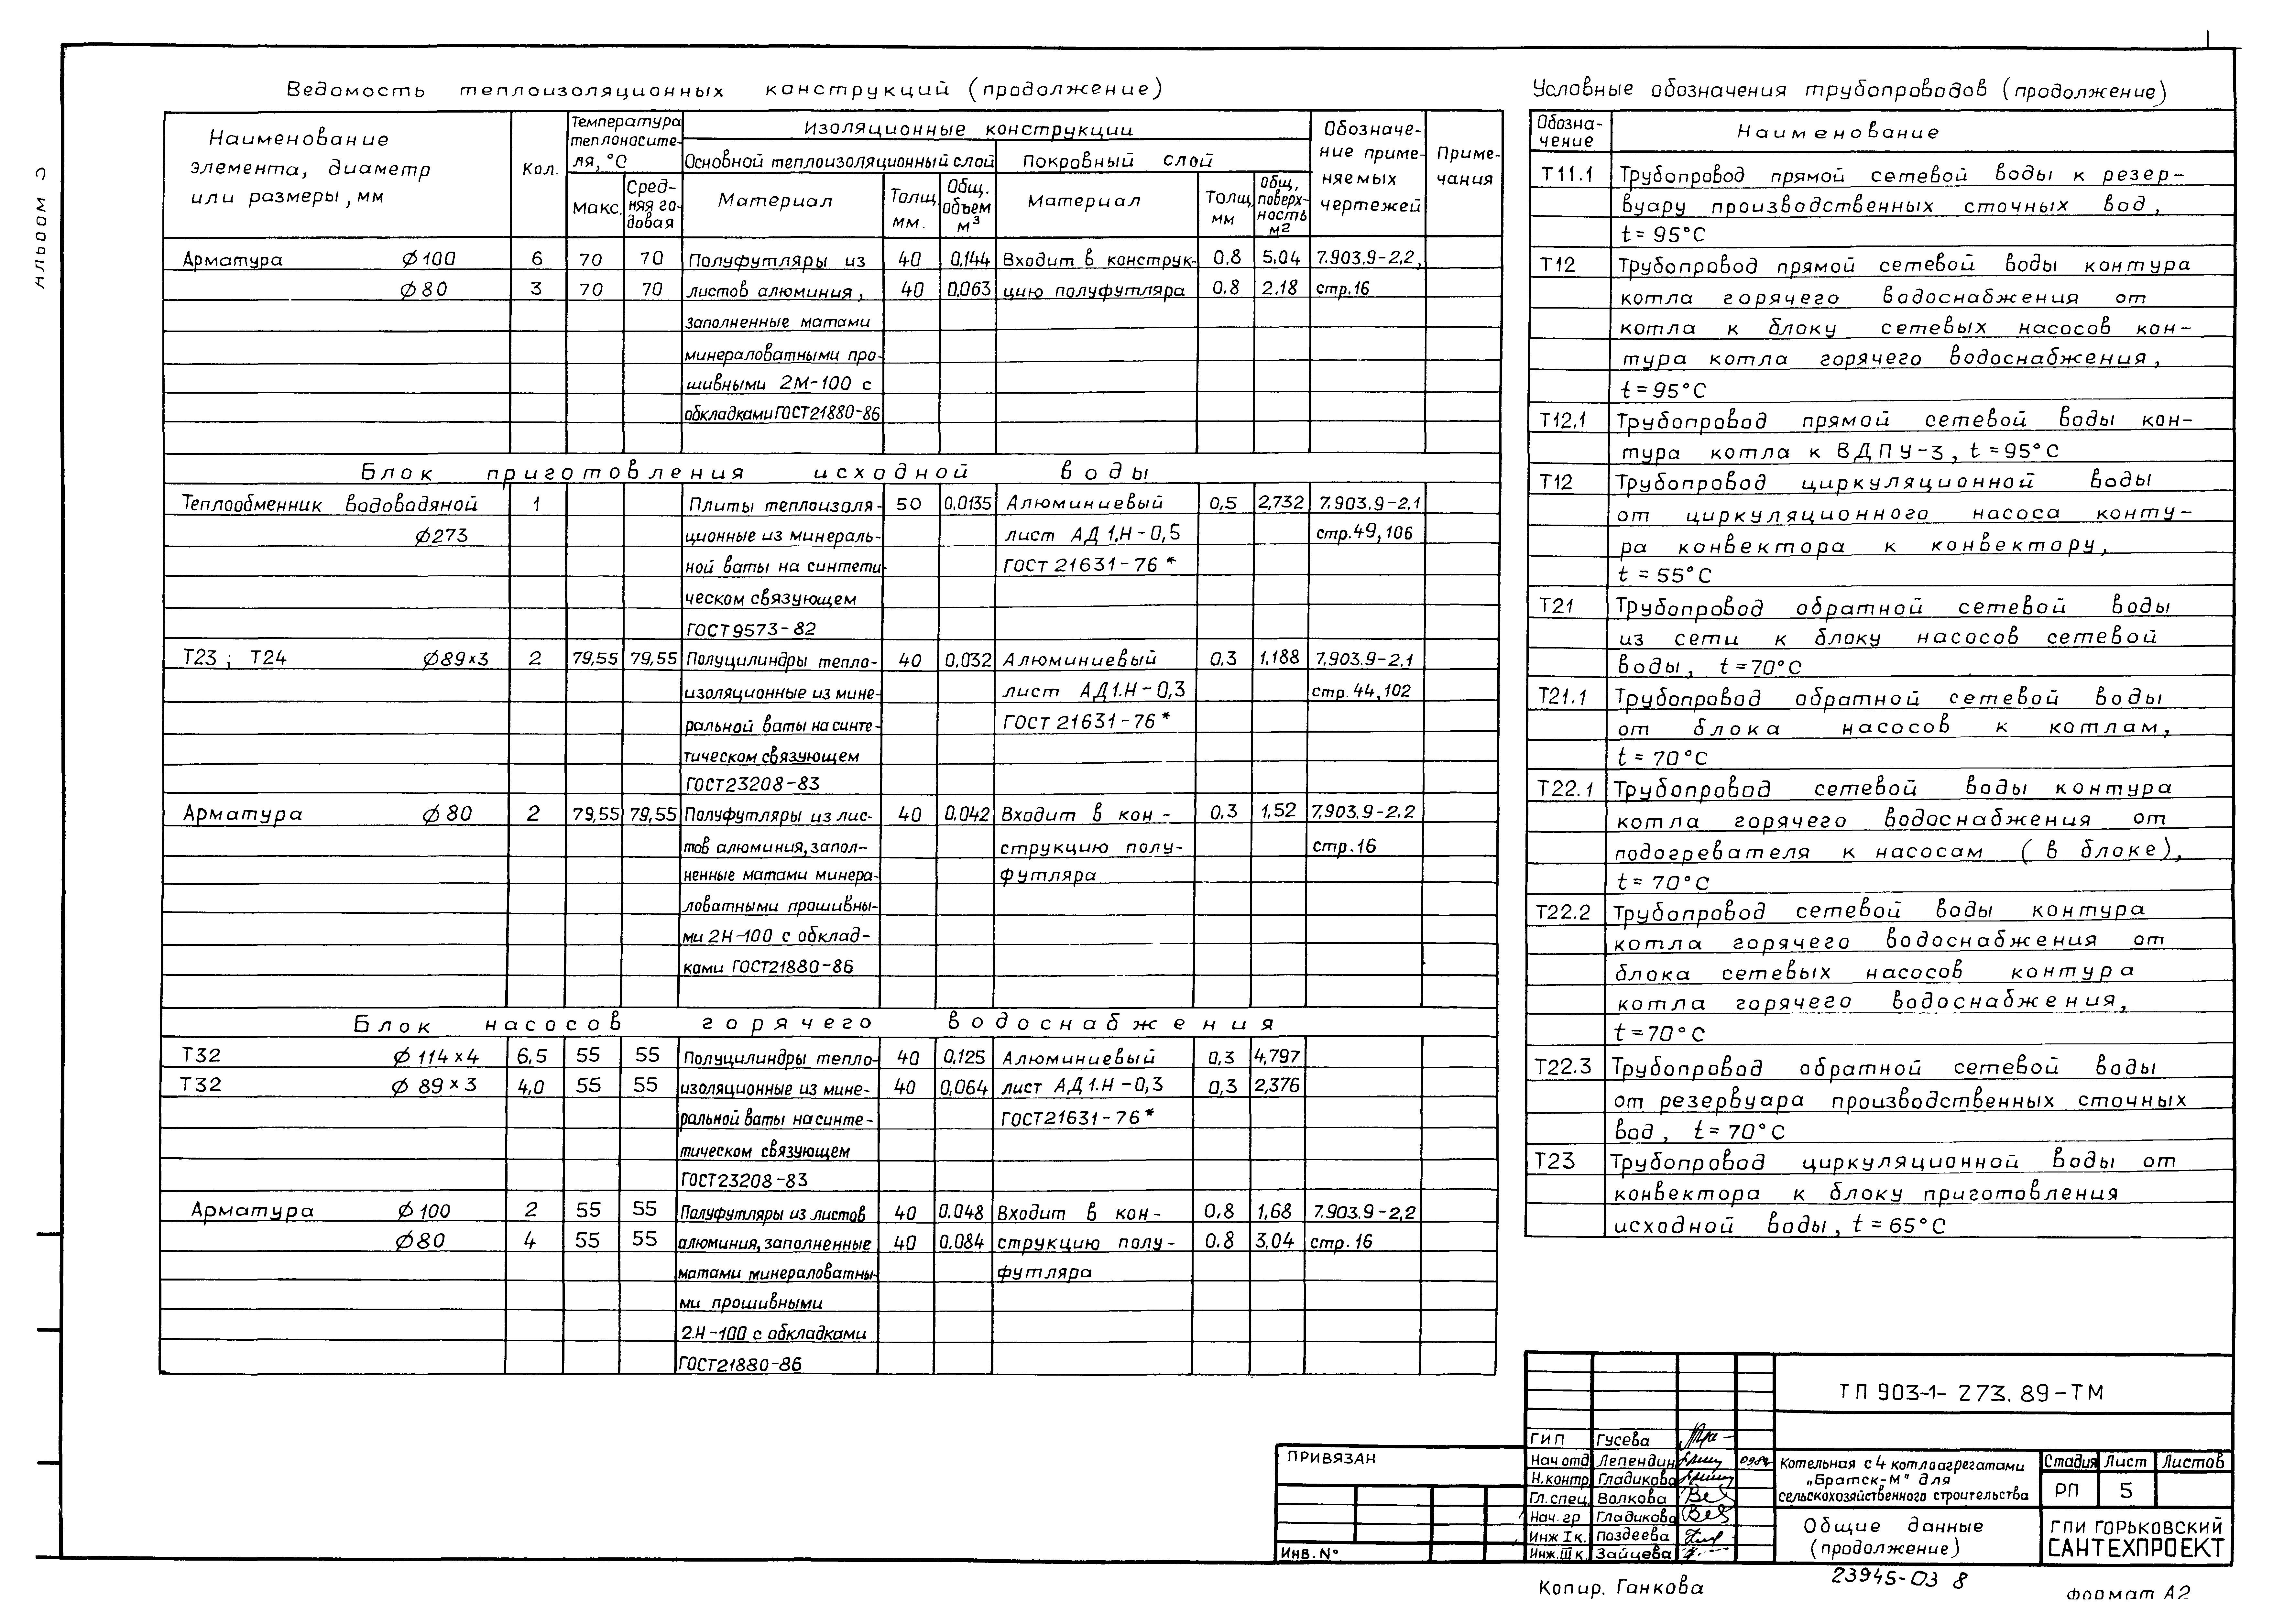 Альбом 3
Ведомость теплоизоляционных конструкций (продолжение)
Наименование элемента, диаметр или размеры, мм | Кол. | Температура теплоносителя, °С | Изоляционные конструкции | Обозначение применяемых чертежей | Примечания
Основной теплоизоляционный слой | Покровный слой
Макс. | Средняя годовая | Материал | Толщ. мм. | Общ. объем м³ | Материал | Толщ мм | Общ. поверхность м²
Арматура ∅100 | 6 | 70 | 70 | Полуфутляры из | 40 | 0,144 | Входит в конструк- | 0.8 | 5,04 | 7.903.9-2.2,
∅80 | 3 | 70 | 70 | листов алюминия, | 40 | 0,063 | цию полуфутляра | 0.8 | 2,18 | стр.16
заполненные матами
минераловатными про-
шивными 2М-100 с
обкладками ГОСТ21880-86
Блок приготовления исходной воды
Теплообменник водоводяной | 1 | Плиты теплоизоля- | 50 | 0,0135 | Алюминиевый | 0,5 | 2,732 | 7.903.9-2.1
∅273 | ционные из минераль- | лист АД 1.Н-0,5 | стр.49,106
ной ваты на синтети- | ГОСТ 21631-76 *
ческом связующем
ГОСТ9573-82
Т23; Т24 ∅89×3 | 2 | 79,55 | 79,55 | Полуцилиндры тепло- | 40 | 0,032 | Алюминиевый | 0.3 | 1,188 | 7.903.9-2.1
изоляционные из мине- | лист АД1.Н-0,3 | стр.44,102
ральной ваты на синте- | ГОСТ 21631-76 *
тическом связующем
ГОСТ23208-83
Арматура ∅80 | 2 | 79,55 | 79,55 | Полуфутляры из лис- | 40 | 0.042 | Входит в кон- | 0,3 | 1,52 | 7.903.9-2.2
тов алюминия, запол- | струкцию полу- | стр.16
ненные матами минера- | футляра
ловатными прошивны-
ми 2Н-100 с обклад-
ками ГОСТ21880-86
Блок насосов горячего водоснабжения
Т32 ∅114×4 | 6,5 | 55 | 55 | Полуцилиндры тепло- | 40 | 0,125 | Алюминиевый | 0,3 | 4,797
Т32 ∅89×3 | 4,0 | 55 | 55 | изоляционные из мине- | 40 | 0,064 | лист АД1.Н-0,3 | 0,3 | 2,376
ральной ваты на синте- | ГОСТ21631-76 *
тическом связующем
ГОСТ23208-83
Арматура ∅100 | 2 | 55 | 55 | Полуфутляры из листов | 40 | 0.048 | Входит в кон- | 0,8 | 1,68 | 7.903.9-2.2
∅80 | 4 | 55 | 55 | алюминия, заполненные | 40 | 0.084 | струкцию полу- | 0.8 | 3,04 | стр.16
матами минераловатны- | футляра
ми прошивными
2.Н-100 с обкладками
ГОСТ21880-86
Условные обозначения трубопроводов (продолжение)
Обозна-чение | Наименование
Т11.1 | Трубопровод прямой сетевой воды к резер-
вуару производственных сточных вод,
t=95°С
Т12 | Трубопровод прямой сетевой воды контура
котла горячего водоснабжения от
котла к блоку сетевых насосов кон-
тура котла горячего водоснабжения,
t=95°С
Т12.1 | Трубопровод прямой сетевой воды кон-
тура котла к ВДПУ-3, t=95°С
Т12 | Трубопровод циркуляционной воды
от циркуляционного насоса конту-
ра конвектора к конвектору,
t=55°С
Т21 | Трубопровод обратной сетевой воды
из сети к блоку насосов сетевой
воды, t=70°С
Т21.1 | Трубопровод обратной сетевой воды
от блока насосов к котлам,
t=70°С
Т22.1 | Трубопровод сетевой воды контура
котла горячего водоснабжения от
подогревателя к насосам (в блоке),
t=70°С
Т22.2 | Трубопровод сетевой воды контура
котла горячего водоснабжения от
блока сетевых насосов контура
котла горячего водоснабжения,
t=70°С
Т22.3 | Трубопровод обратной сетевой воды
от резервуара производственных сточных
вод, t=70°С
Т23 | Трубопровод циркуляционной воды от
конвектора к блоку приготовления
исходной воды, t=65°С
ПРИВЯЗАН
Инв. N°
ГИП Гусева
Нач отд Лепендин
Н.контр Гладикова
Гл.спец. Волкова
Нач. гр Гладикова
Инж I к. Поздеева
Инж. III к. Зайцева
ТП 903-1-273.89-ТМ
Котельная с 4 котлоагрегатами
„Братск-М" для
сельскохозяйственного строительства
Стадия | Лист | Листов
РП | 5
Общие данные
(продолжение)
ГПИ ГОРЬКОВСКИЙ
САНТЕХПРОЕКТ
Копир. Ганкова
23945-03 8
формат А2